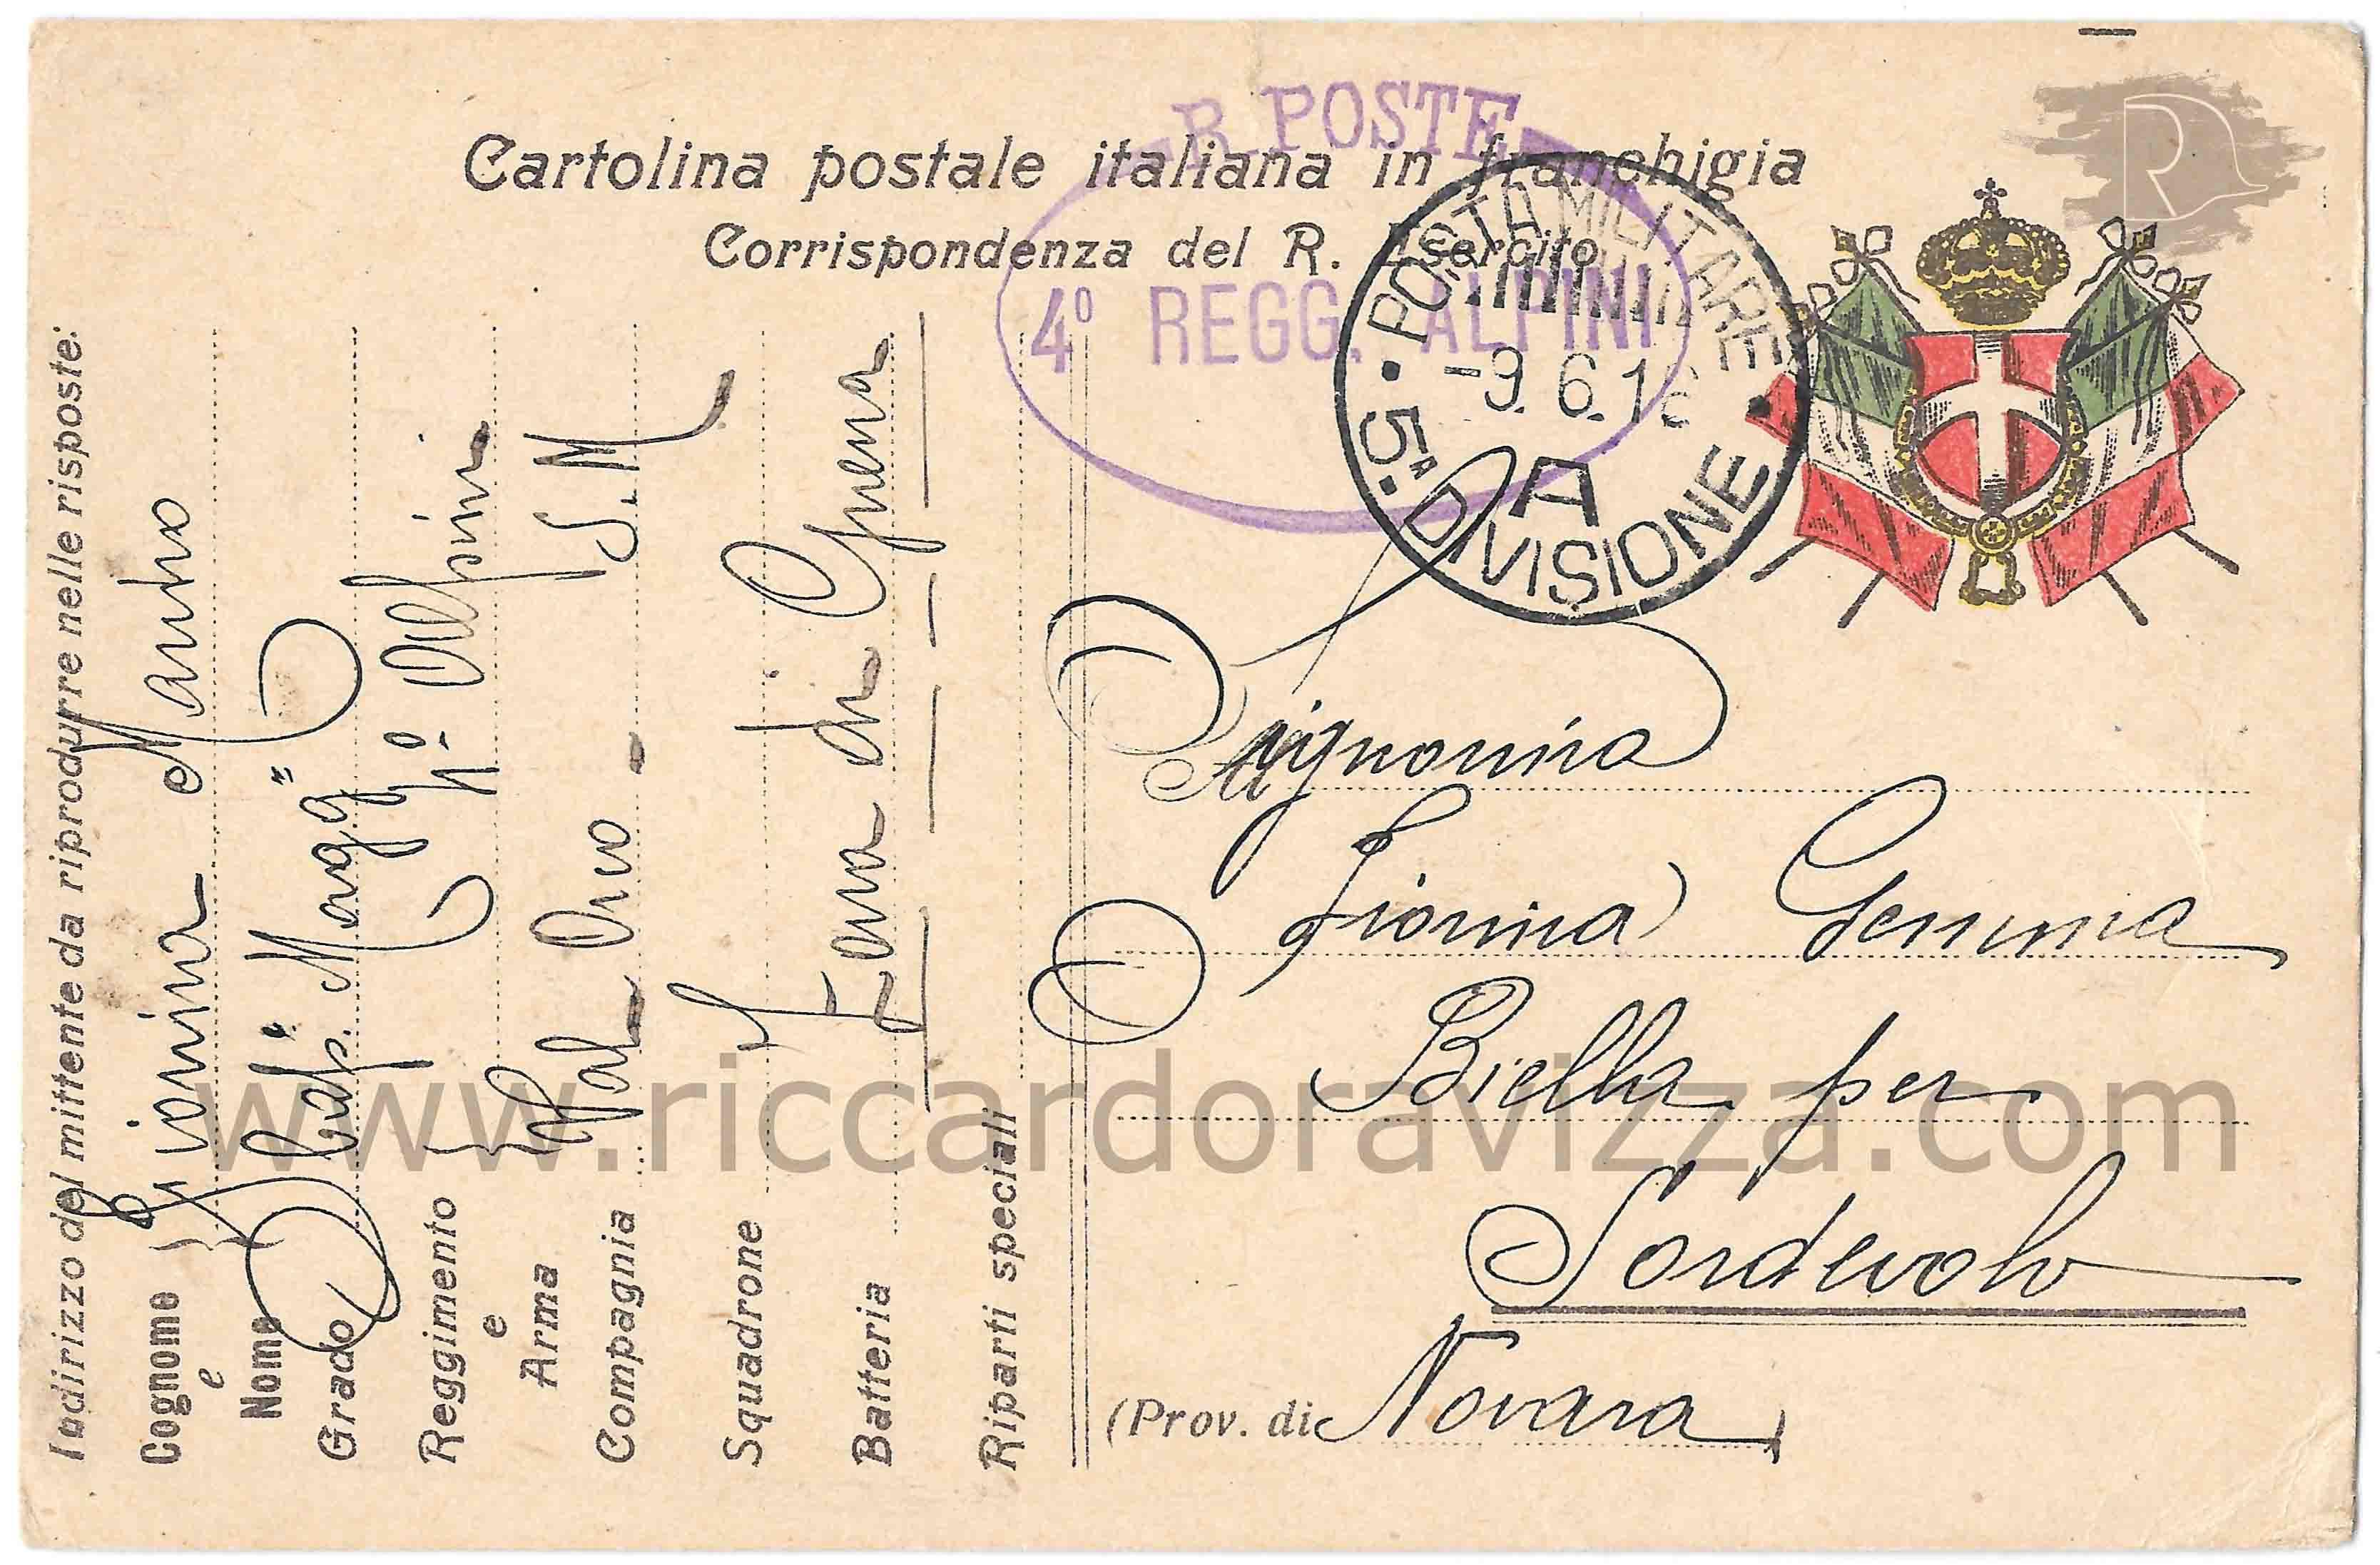 R. POSTE
Cartolina postale italiana in franchigia
Corrispondenza del R. Esercito
4º REGG. ALPINI
POSTA MILITARE
-9.6.16
A
5ª DIVISIONE
Indirizzo del mittente da riprodurre nelle risposte:
Cognome e Nome
Grado Magg.
Reggimento e Arma 4º Alpini
Compagnia Val Orco - S.M.
Squadrone
Batteria Zona di Guerra
Riparti speciali
Signorina
Gemma
Biella per
Sordevolo
(Prov. di Novara)
www.riccardoravizza.com
R